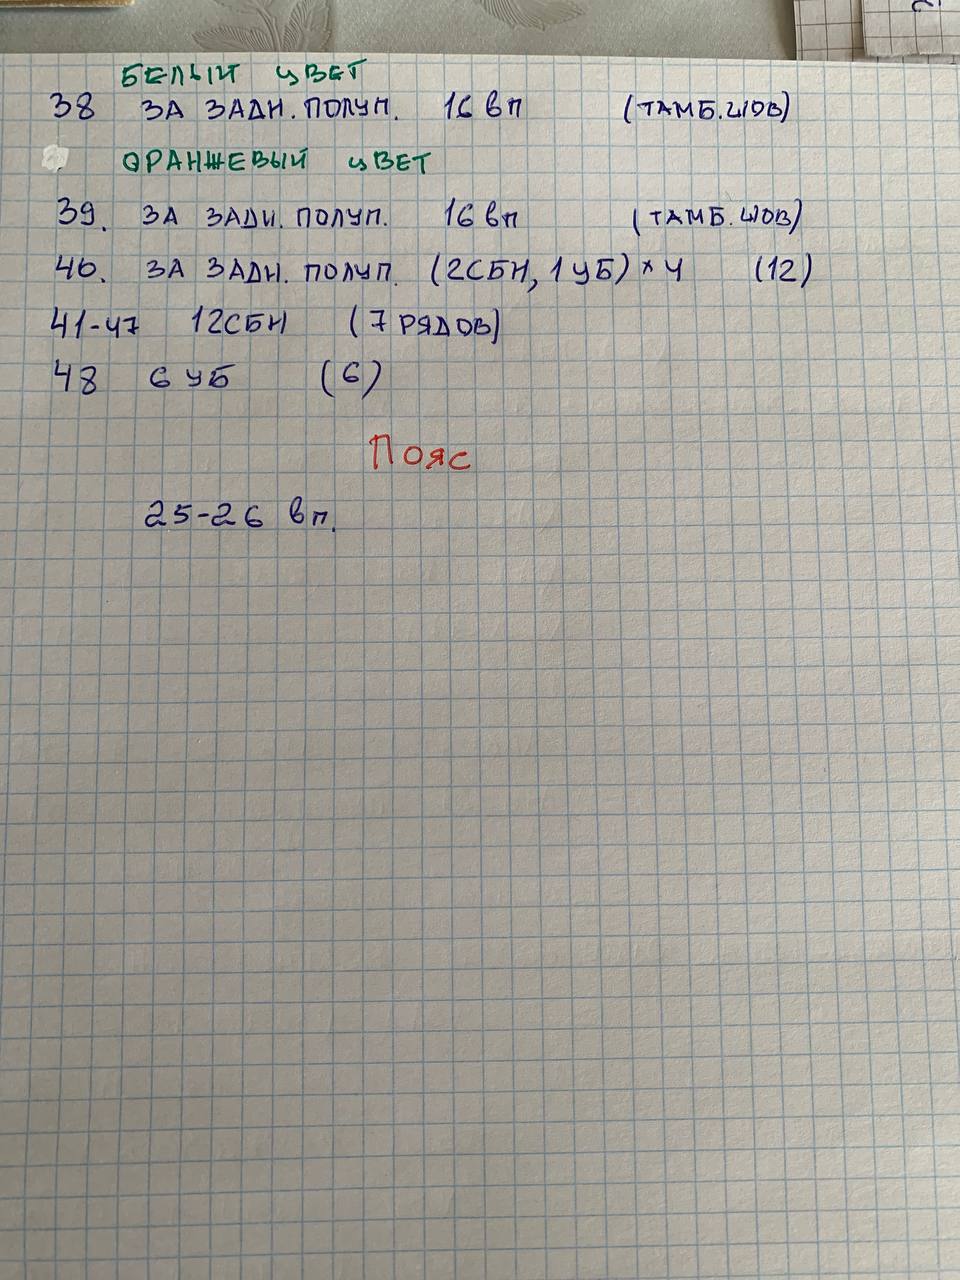 БЕЛЫЙ ЦВЕТ
38 ЗА ЗАДН. ПОЛУП. 16 вп (ТАМБ. ШОВ)
ОРАНЖЕВЫЙ ЦВЕТ
39. ЗА ЗАДН. ПОЛУП. 16 вп (ТАМБ. ШОВ)
40. ЗА ЗАДН. ПОЛУП. (2СБН, 1 УБ) × 4 (12)
41-47 12СБН (7 РЯДОВ)
48 6 УБ (6)
Пояс
25-26 вп.